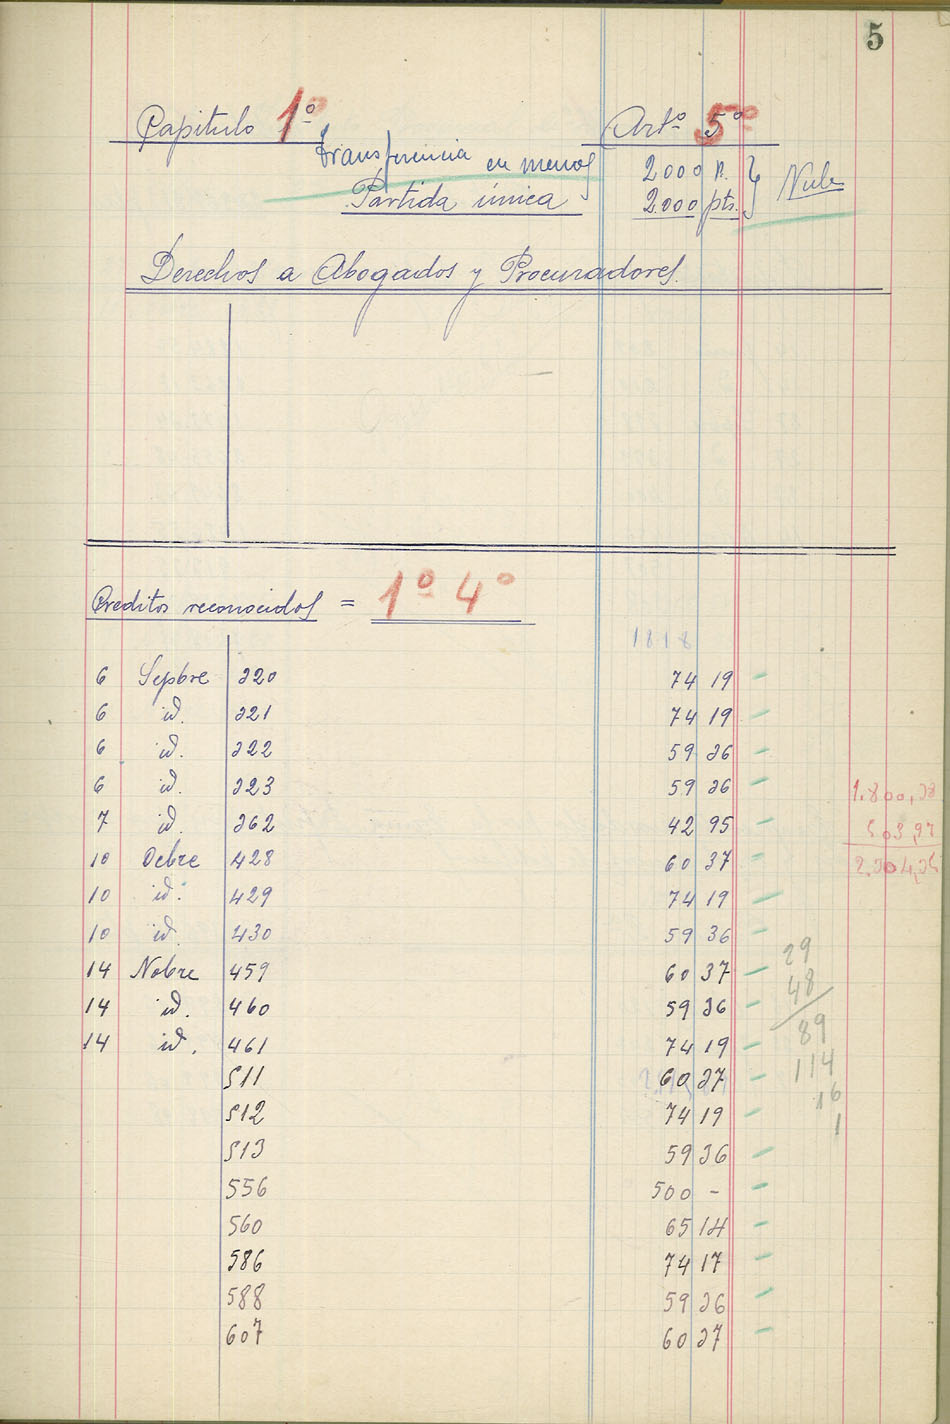 5
Capitulo 1º Artº 5º
transferencia en menos 2000 p.
Partida única 2.000 pts. Nula
Derechos a Abogados y Procuradores.
Creditos reconocidos = 1º 4º
1818
6 Sepbre 320 74 19
6 id. 321 74 19
6 id. 322 59 36
6 id. 323 59 36
7 id. 362 42 95
10 Ocbre 428 60 37
10 id. 429 74 19
10 id. 430 59 36
14 Nobre 459 60 37
14 id. 460 59 36
14 id. 461 74 19
511 60 37
512 74 19
513 59 36
556 500 -
560 65 14
586 74 17
588 59 36
607 60 37
1.800,38
503,97
2.304,35
29
48
89
114
16
1